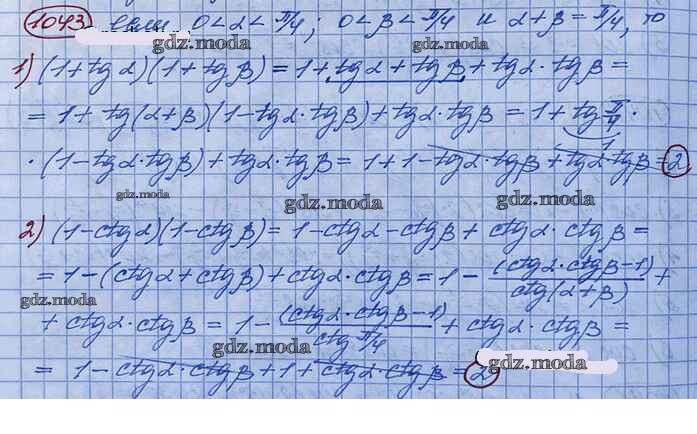 1043 если 0<α<π/4; 0<β<π/4 и α+β=π/4, то
gdz.moda gdz.moda
1) (1+tgα)(1+tgβ)=1+tgα+tgβ+tgα·tgβ=
=1+tg(α+β)(1-tgα·tgβ)+tgα·tgβ=1+tg π/4 ·
gdz.moda
1
·(1-tgα·tgβ)+tgα·tgβ=1+1-tgα·tgβ+tgα·tgβ=2
gdz.moda gdz.moda gdz.moda
2) (1-ctgα)(1-ctgβ)=1-ctgα-ctgβ+ctgα·ctgβ=
=1-(ctgα+ctgβ)+ctgα·ctgβ=1-(ctgα·ctgβ-1)/ctg(α+β)+
gdz.moda
+ctgα·ctgβ=1-(ctgα·ctgβ-1)/ctg π/4+ctgα·ctgβ=
gdz.moda gdz.moda
=1-ctgα·ctgβ+1+ctgα·ctgβ=2